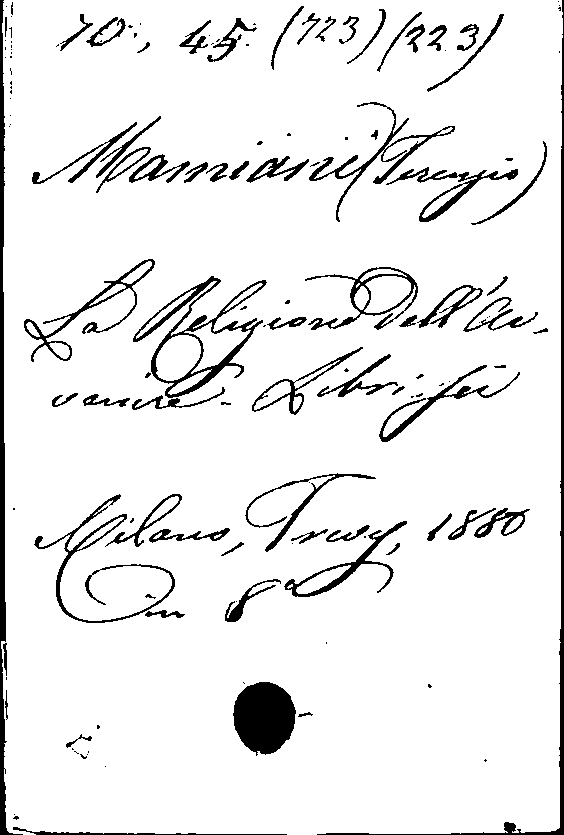 70, 45 (723) (223)
Mamiani (Terenzio)
La Religione dell'Av-
venire - Libri sei
Milano, Treves, 1880
in 8°